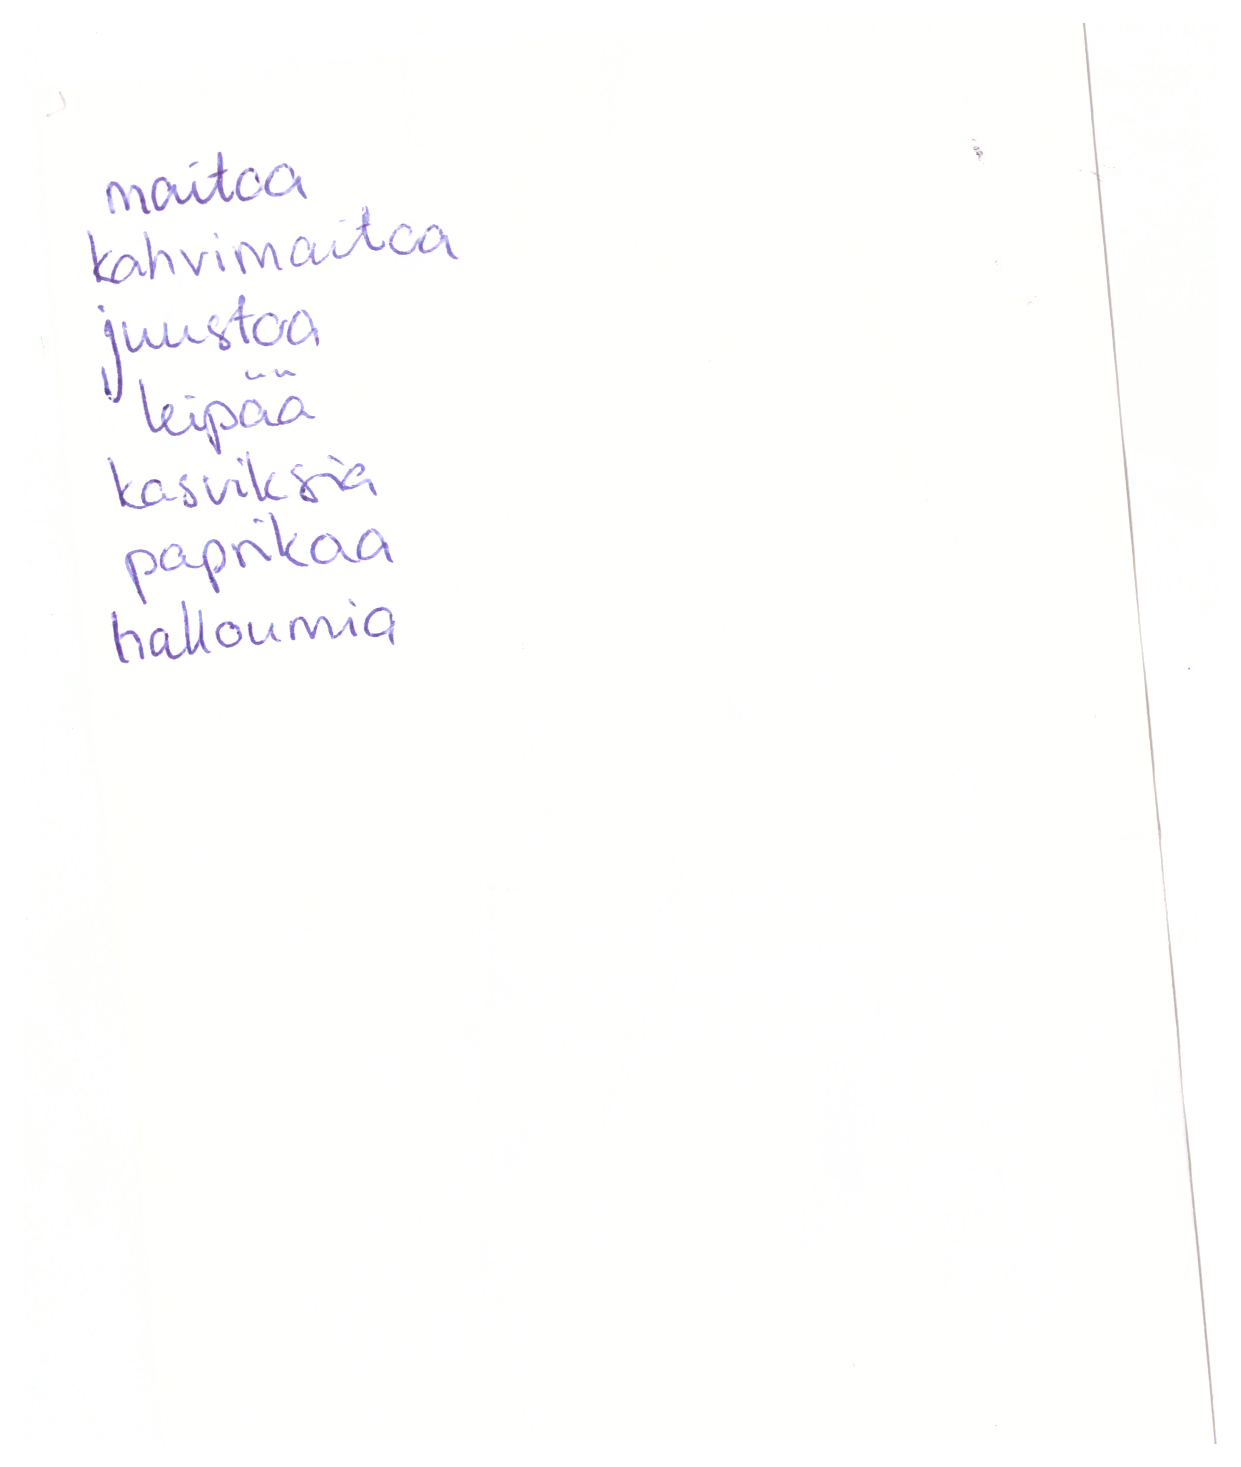 maitoa
kahvimaitoa
juustoa
leipää
kasviksia
paprikaa
halloumia